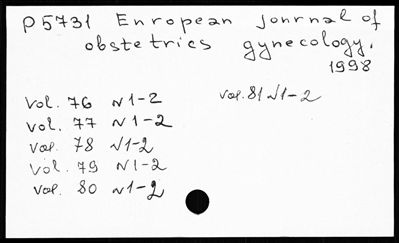 P5731 Enropean jonrnal of
obstetrics gynecology.
1998
vol. 76 N1-2
vol. 77 N1-2
vol. 78 N1-2
vol. 79 N1-2
vol. 80 N1-2
vol. 81 N1-2